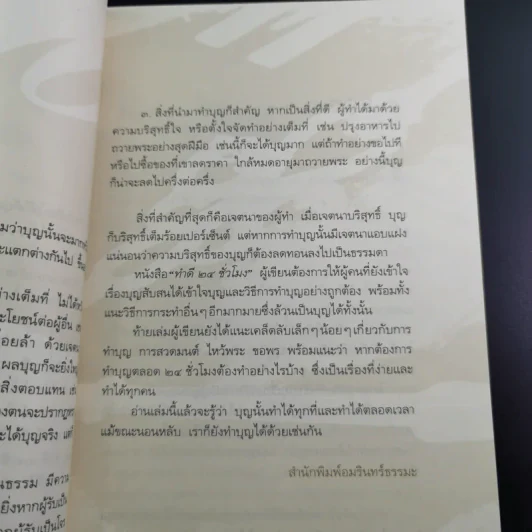 ๓. สิ่งที่นำมาทำบุญก็สำคัญ หากเป็นสิ่งที่ดี ผู้ทำได้มาด้วย
ความบริสุทธิ์ใจ หรือตั้งใจจัดทำอย่างเต็มที่ เช่น ปรุงอาหารไป
ถวายพระอย่างสุดฝีมือ เช่นนี้ก็จะได้บุญมาก แต่ถ้าทำอย่างขอไปที
หรือไปซื้อของที่เขาลดราคา ใกล้หมดอายุมาถวายพระ อย่างนี้บุญ
ก็น่าจะลดไปครึ่งต่อครึ่ง
สิ่งที่สำคัญที่สุดก็คือเจตนาของผู้ทำ เมื่อเจตนาบริสุทธิ์ บุญ
ก็บริสุทธิ์เต็มร้อยเปอร์เซ็นต์ แต่หากการทำบุญนั้นมีเจตนาแอบแฝง
แน่นอนว่าความบริสุทธิ์ของบุญก็ต้องลดทอนลงไปเป็นธรรมดา
หนังสือ“ทำดี ๒๔ ชั่วโมง” ผู้เขียนต้องการให้ผู้คนที่ยังเข้าใจ
เรื่องบุญสับสนได้เข้าใจบุญและวิธีการทำบุญอย่างถูกต้อง พร้อมทั้ง
แนะวิธีการกระทำอื่นๆอีกมากมายซึ่งล้วนเป็นบุญได้ทั้งนั้น
ท้ายเล่มผู้เขียนยังได้แนะเคล็ดลับเล็กๆน้อยๆเกี่ยวกับการ
ทำบุญ การสวดมนต์ ไหว้พระ ขอพร พร้อมแนะว่า หากต้องการ
ทำบุญตลอด ๒๔ ชั่วโมงต้องทำอย่างไรบ้าง ซึ่งเป็นเรื่องที่ง่ายและ
ทำได้ทุกคน
อ่านเล่มนี้แล้วจะรู้ว่า บุญนั้นทำได้ทุกที่และทำได้ตลอดเวลา
แม้ขณะนอนหลับ เราก็ยังทำบุญได้ด้วยเช่นกัน
สำนักพิมพ์อมรินทร์ธรรมะ